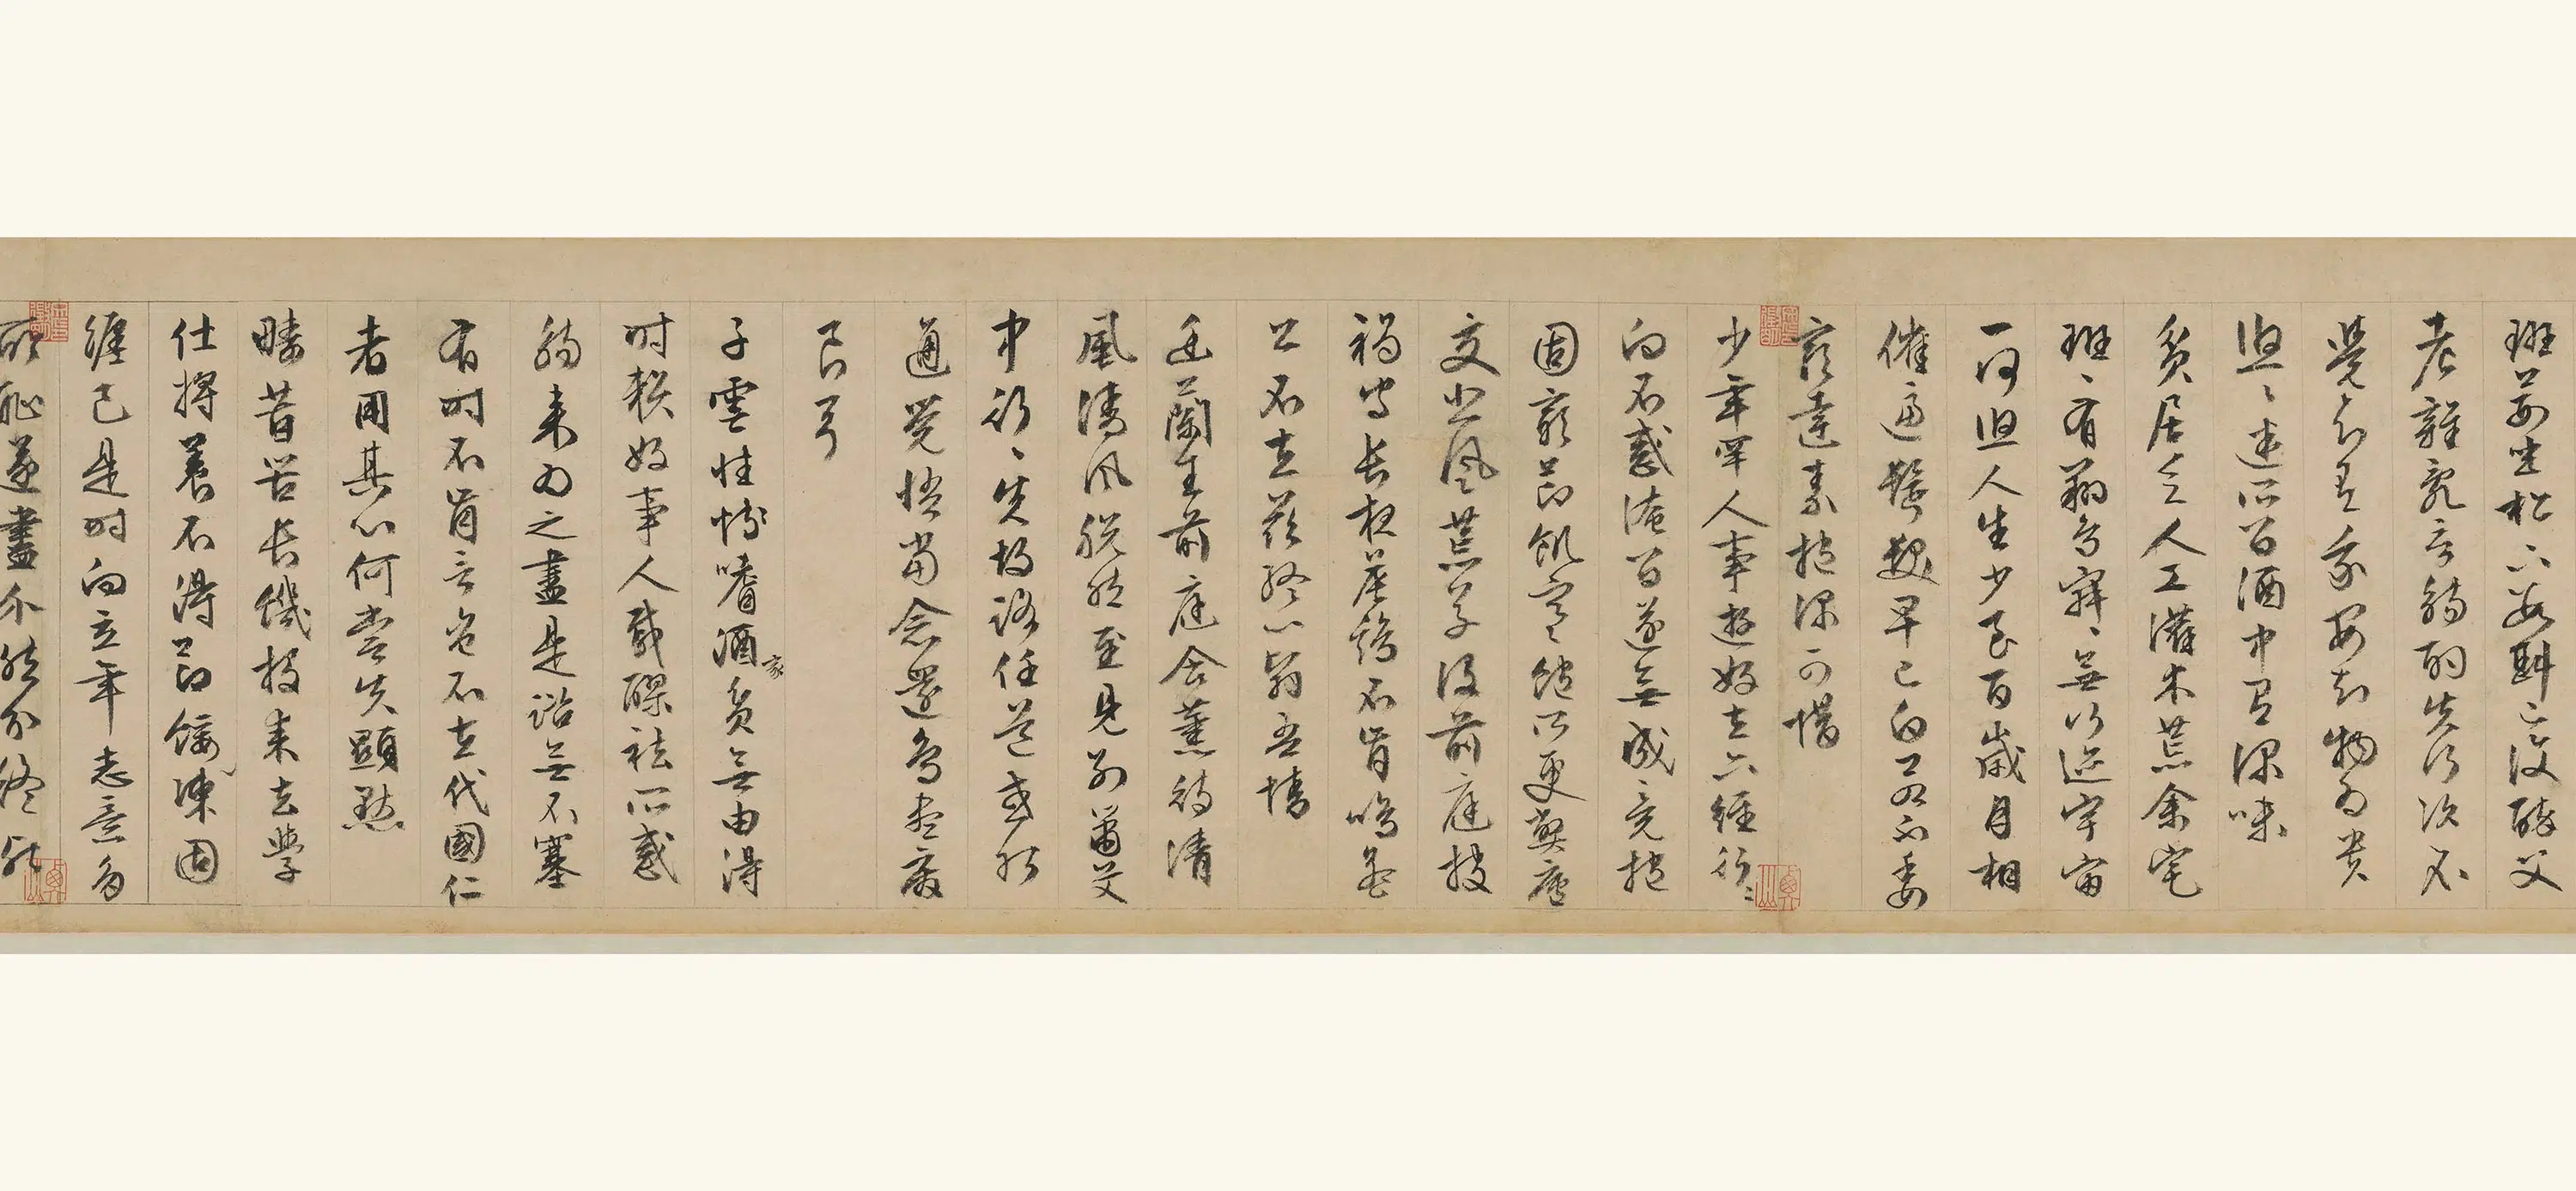 班荊坐松下數斟已復醉父
老雜亂言觴酌失行次不
覺知有我安知物為貴
悠々迷所留酒中有深味
貧居乏人工灌木荒余宅
班々有翔鳥寂々無行迹宇宙
一何悠人生少至百歲月相
催逼鬢邊早已白若不委
窮達素抱深可惜
少年罕人事遊好在六經行々
向不惑淹留遂無成竟抱
固窮節飢寒飽所更弊廬
交悲風荒草沒前庭披
褐守長夜晨雞不肯鳴孟
公不在茲終以翳吾情
幽蘭生前庭含薰待清
風清風脫然至見別蕭艾
中行々失故路任道或能
通覺悟當念還鳥盡廢
良弓
子雲性情嗜酒家貧無由得
時賴好事人載醪祛所惑
觴來為之盡是諮無不塞
有時不肯言豈不在代國仁
者用其心何嘗失顯默
疇昔苦長飢投耒去學
仕將養不得節餒凍固
纏己是時向立年志意多
所恥遂盡介然分終死